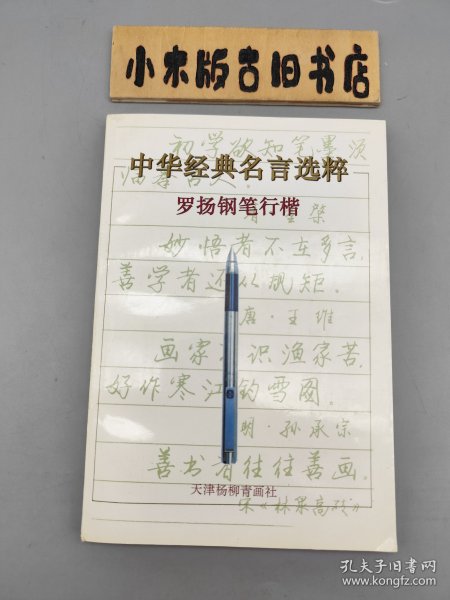 小木版古旧书店
初学欲知笔墨须
临摹古人。
中华经典名言选粹
罗扬钢笔行楷
妙悟者不在多言,
善学者还从规矩。
唐·王维
画家不识渔家苦,
好作寒江钓雪图。
明·孙承宗
善书者往往善画。
天津杨柳青画社
宋《林泉高致》
孔夫子旧书网
www.kongfz.com